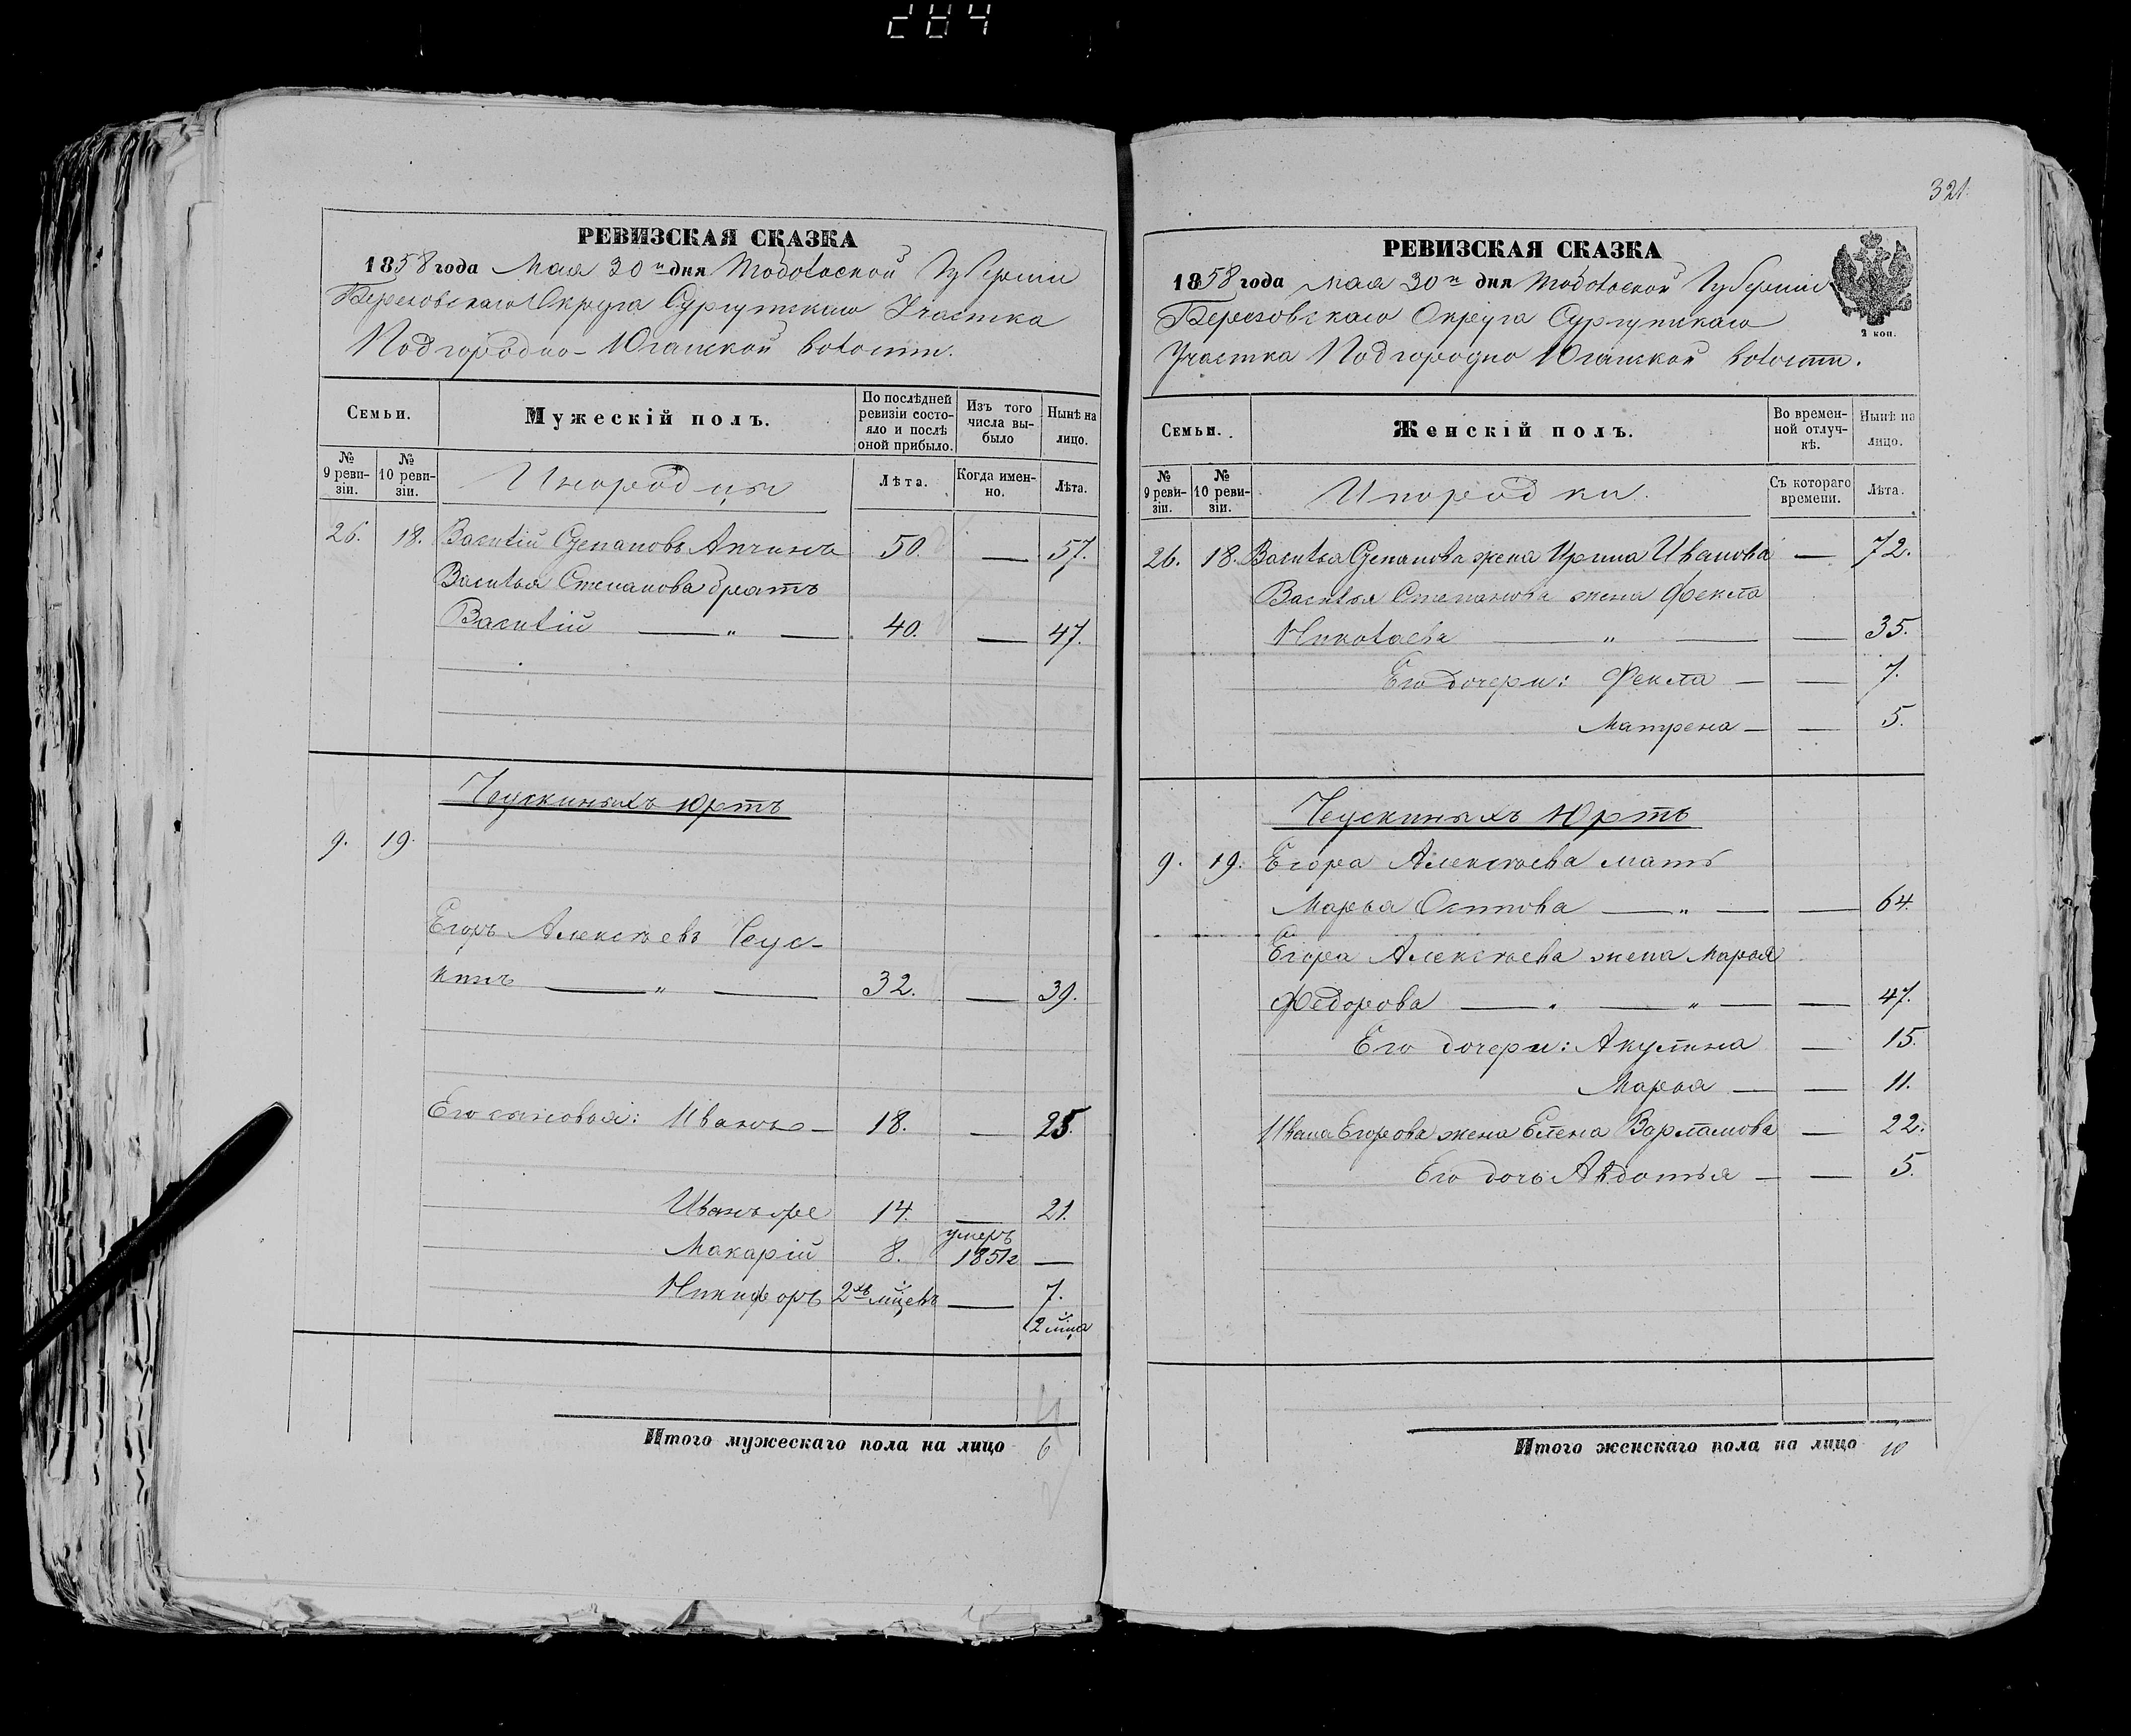 284
РЕВИЗСКАЯ СКАЗКА
1858 года Мая 30го дня Тобольской Губерніи
Березовскаго Округа Сургутскаго Участка
Подгородно-Юганской волости.
Семьи.
Мужескій полъ.
По послѣдней ревизіи состояло и послѣ оной прибыло.
Изъ того числа выбыло
Нынѣ на лицо.
№ 9 ревизіи.
№ 10 ревизіи.
Инородцы
Лѣта.
Когда именно.
Лѣта.
26. 18. Василій Степановъ Апчинъ 50. — 57.
Василья Степанова братъ
Василій — " — 40. — 47.
Чеускиныхъ юртъ
9. 19.
Егоръ Алексѣевъ Чеус-
кинъ — " — 32. — 39.
Его сыновья: Иванъ — 18. — 25.
Иванъ же 14. — 21.
Макарій 8. умеръ 1851 г —
Никифоръ 2хъ мѣцевъ — 7.
2 мѣца
Итого мужескаго пола на лицо 6
321.
РЕВИЗСКАЯ СКАЗКА
1858 года мая 30го дня Тобольской Губерніи
Березовскаго Округа Сургутскаго
Участка Подгородно Юганской волости.
2 коп.
Семьи.
Женскій полъ.
Во временной отлучкѣ.
Нынѣ на лицо.
№ 9 ревизіи.
№ 10 ревизіи.
Инородки.
Съ котораго времени.
Лѣта.
26. 18. Василья Степанова жена Ирина Иванова — 72.
Василья Степанова жена Фекла
Николаева — " — — 35.
Его дочери: Фекла — — 7.
Матрена — — 5.
Чеускиныхъ Юртъ
9. 19. Егора Алексѣева мать
Марья Осипова — " — — 64.
Егора Алексѣева жена Марья
Федорова — " — " — — 47.
Его дочери: Акулина — 15.
Марья — — 11.
Ивана Егорова жена Елена Варламова — 22.
Его дочь Авдотья — — 5.
Итого женскаго пола на лицо 10